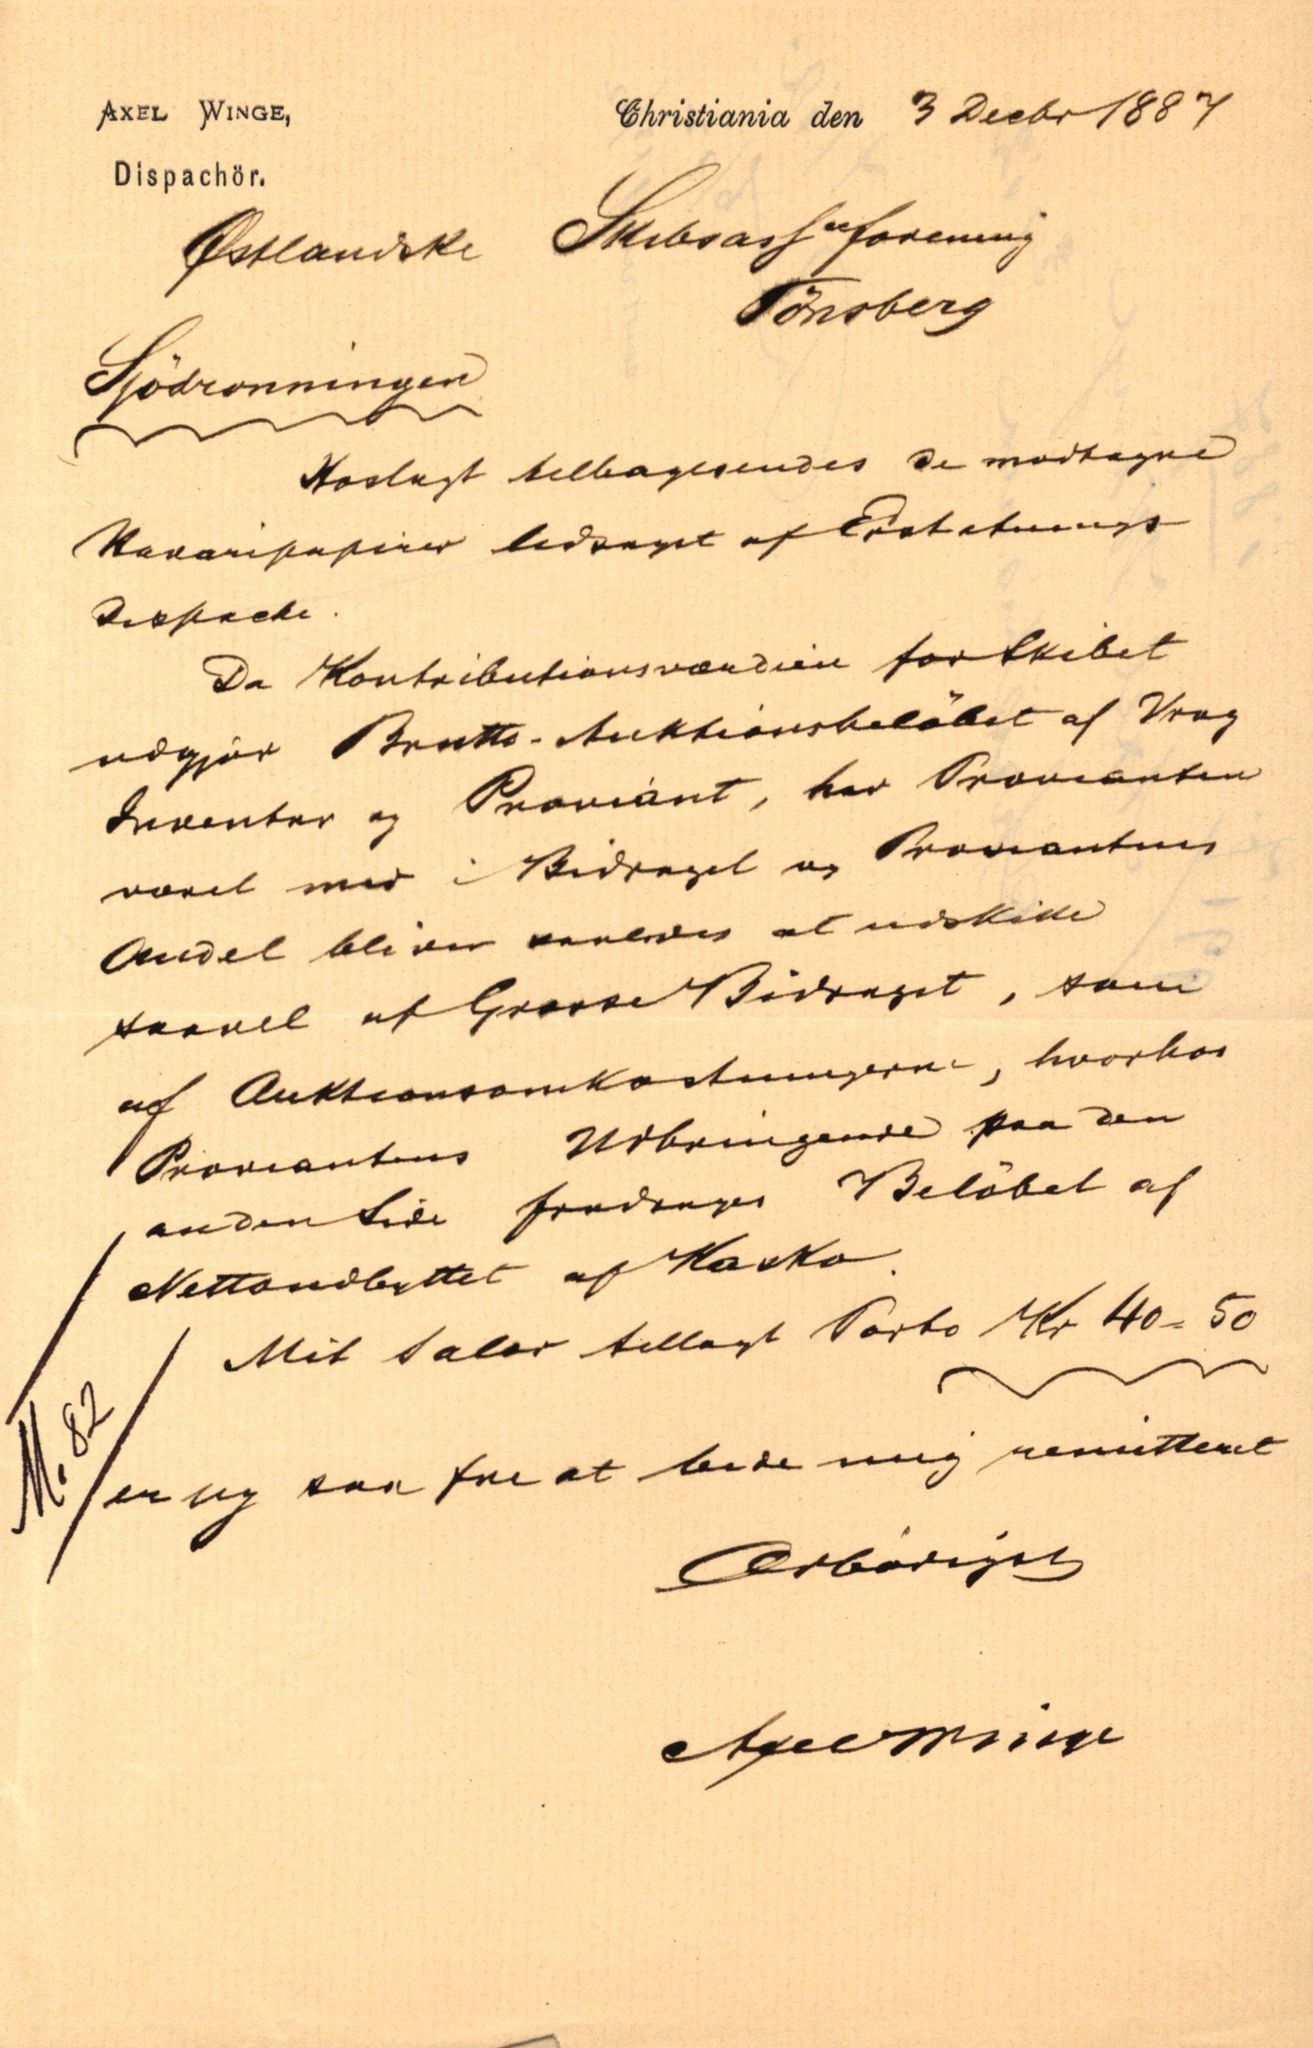 AXEL WINGE,
Dispachör.
Christiania den 3 Decbr 1887
Østlandske Skibsassceforening
Tönsberg
Sjödronningen
Hoslagt tilbagesendes de modtagne
Havaripapirer ledsaget af Erstatnings
dispache.
Da Kontributionsværdien for Skibet
udgjør Brutto-Auktionsbelöbet af Vrag
Inventar og Proviant, har Provianten
været med i Bidraget og Proviantens
Andel bliver saaledes at udskille
saavel af Grosse Bidraget, som
af Auktionsomkostningerne, hvorhos
Proviantens Udbringende paa den
anden Side fradrages Belöbet af
Nettoudbyttet af Kasko.
Mit Salær tillagt Porto Kr 40=50
er jeg saa fri at bede mig remitteret
Ærbödigst
Axel Winge
M. 82